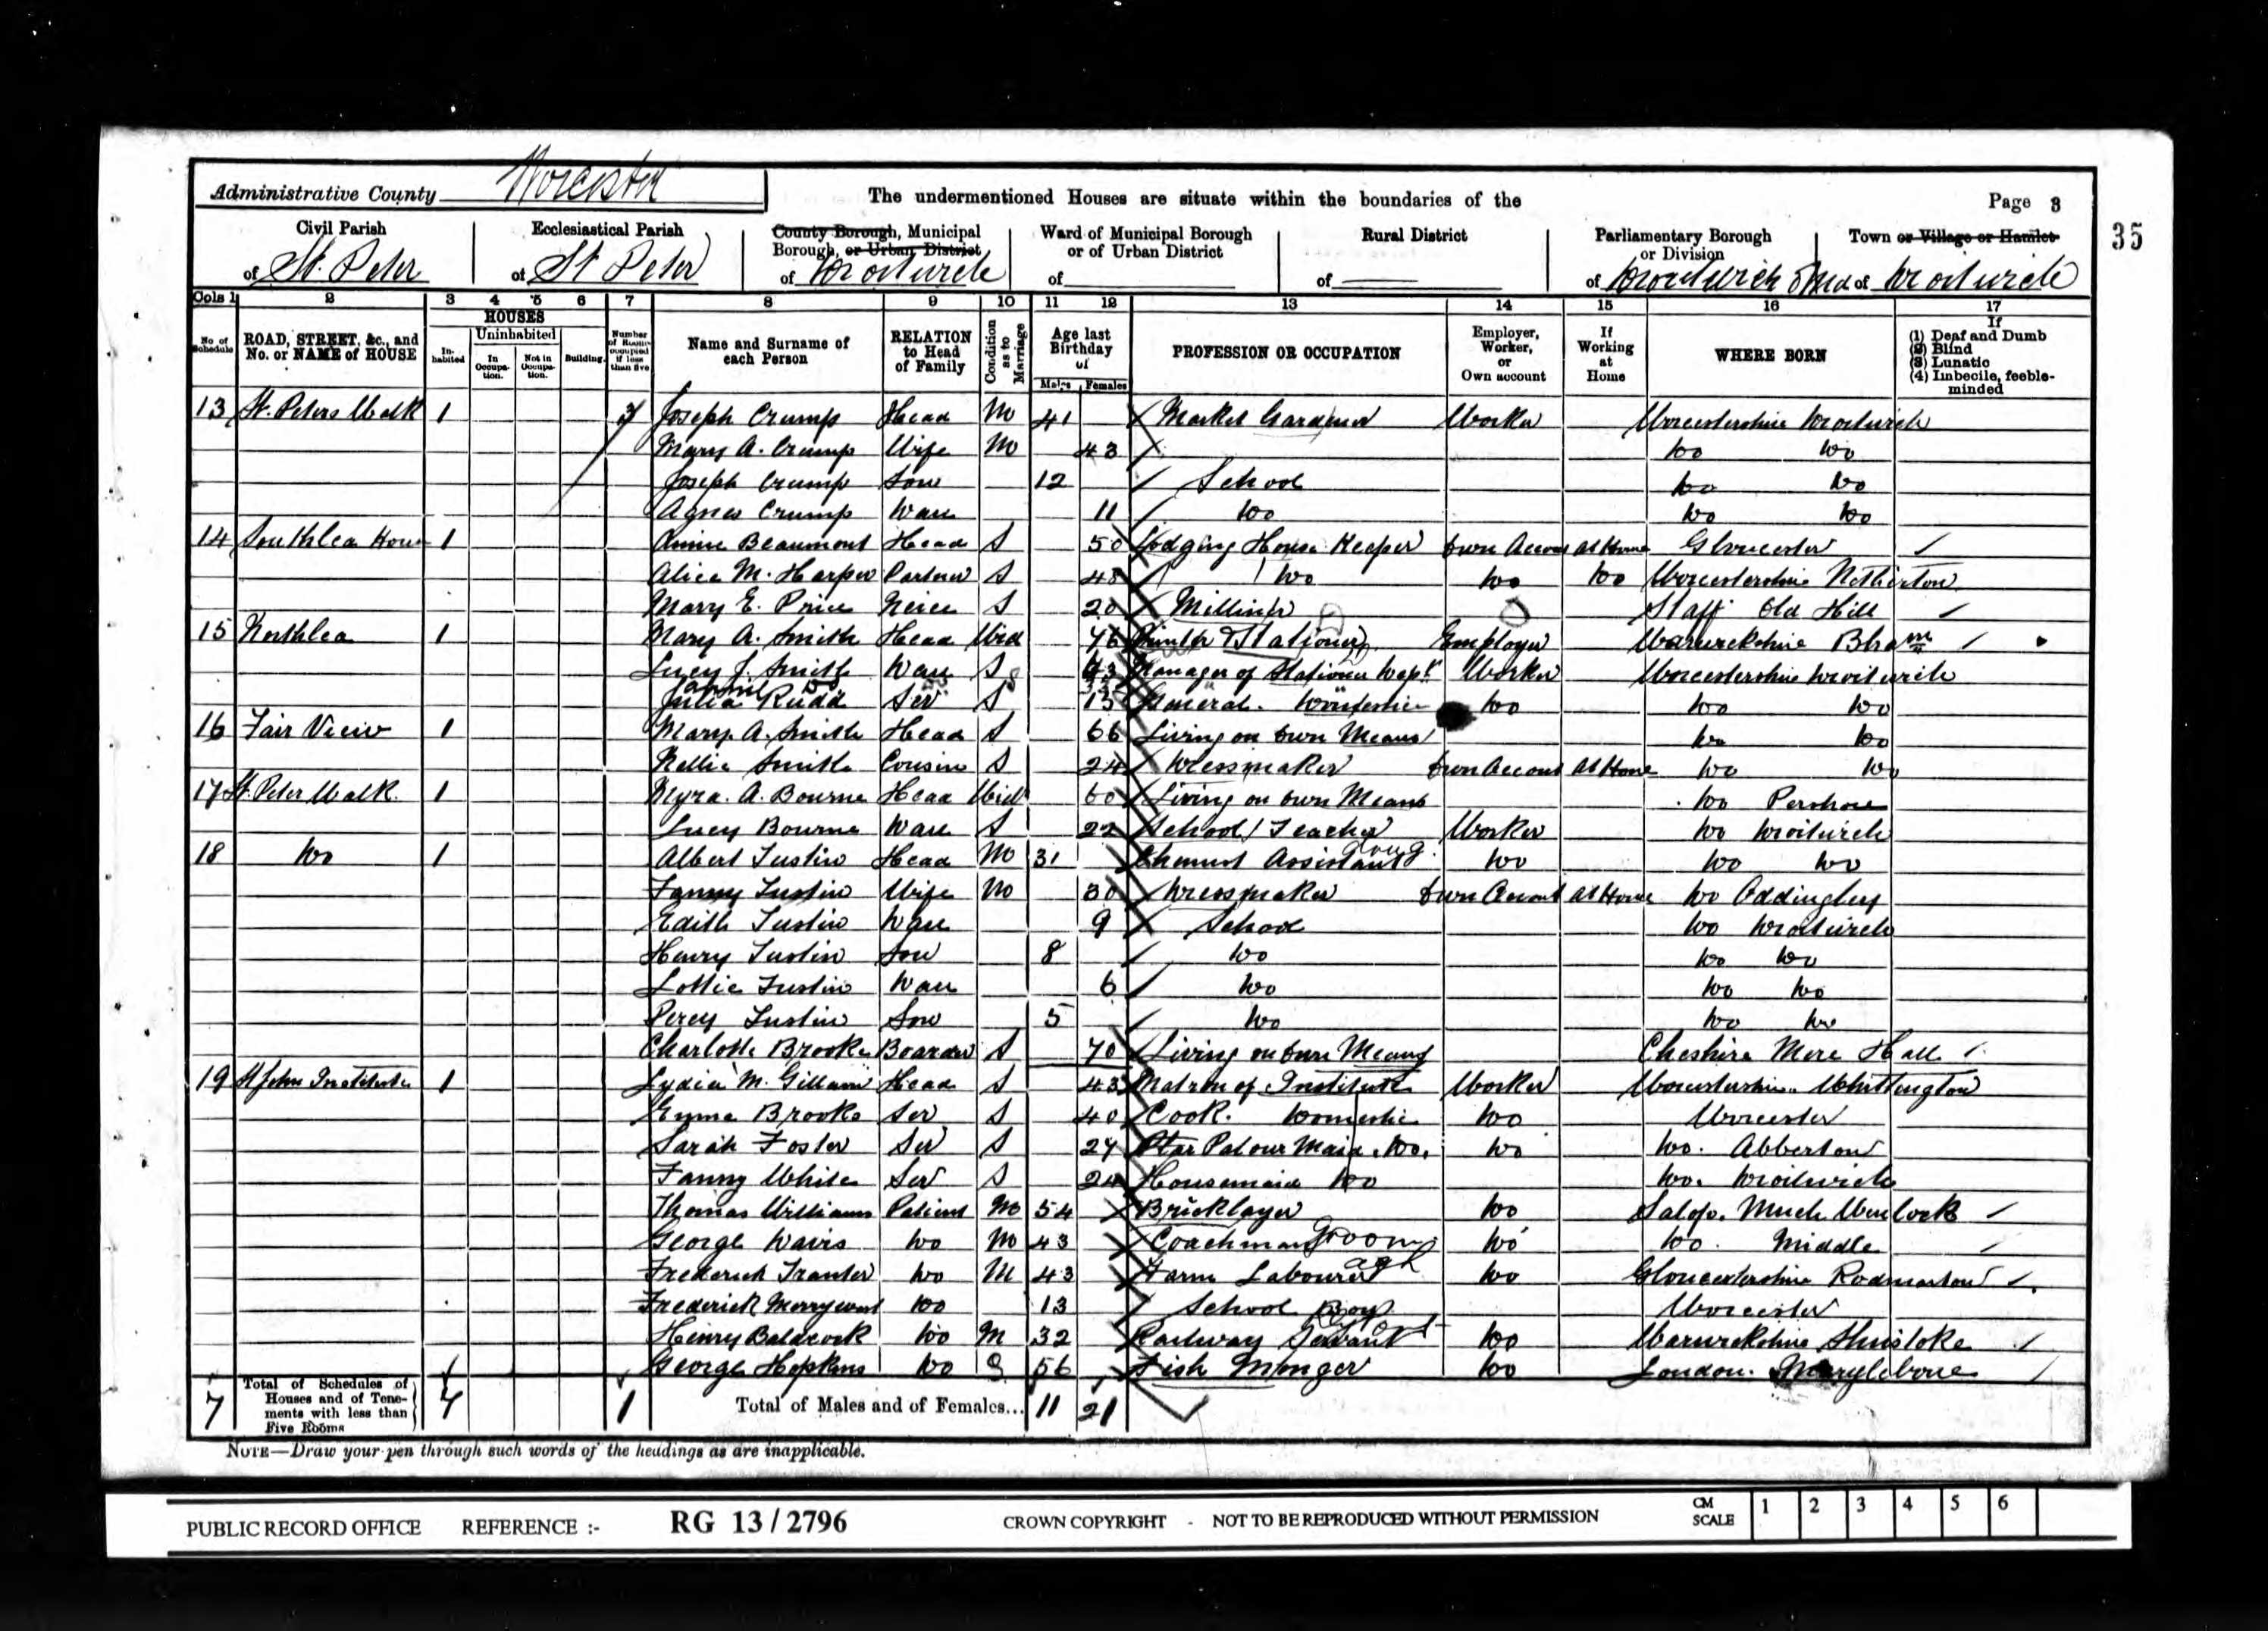 Administrative County Worcester
The undermentioned Houses are situate within the boundaries of the
Page 8
35
Civil Parish
of St. Peter
Ecclesiastical Parish
of St Peter
County Borough, Municipal
Borough, or Urban District
of Droitwich
Ward of Municipal Borough
or of Urban District
of
Rural District
of
Parliamentary Borough
or Division
of Droitwich Mid
Town or Village or Hamlet
of Droitwich
Cols 1 2 3 4 5 6 7 8 9 10 11 12 13 14 15 16 17
No. of Schedule
ROAD, STREET, &c., and
No. or NAME of HOUSE
HOUSES
In-habited
Uninhabited
In Occupa-tion.
Not in Occupa-tion.
Building.
Number of Rooms occupied if less than five
Name and Surname of
each Person
RELATION
to Head
of Family
Condition as to Marriage
Age last
Birthday
of
Males Females
PROFESSION OR OCCUPATION
Employer,
Worker,
or
Own account
If
Working
at
Home
WHERE BORN
If
(1) Deaf and Dumb
(2) Blind
(3) Lunatic
(4) Imbecile, feeble-
minded
13 St. Peters Walk 1 Joseph Crump Head M 41 Market Gardener Worker Worcestershire Droitwich
Mary A. Crump Wife M 43 Do Do
Joseph Crump Son 12 School Do Do
Agnes Crump Daur 11 Do Do Do
14 Southlea House 1 Annie Beaumont Head S 50 Lodging House Keeper Own Account At Home Gloucester
Alice M. Harper Partner S 48 Do Do Do Worcestershire Netherton
Mary E. Price Neice S 20 Milliner Staff Old Hill
15 Northlea 1 Mary A. Smith Head Wid 76 Printer & Stationer Employer Warwickshire Bham
Lucy J. Smith Daur S 43 Manager of Stationer Dept. Worker Worcestershire Droitwich
Julia Rudd Ser S 15 General Domestic Do Do Do
16 Fair View 1 Mary A. Smith Head S 66 Living on Own Means Do Do
Nellie Smith Cousin S 24 Dressmaker Own Account At Home Do Do
17 St. Peter Walk 1 Myra. A. Bourne Head Wid 60 Living on Own Means Do Pershore
Lucy Bourne Daur S 22 School Teacher Worker Do Droitwich
18 Do 1 Albert Tustin Head M 31 Chemist Assistant Drug. Do Do Do
Fanny Tustin Wife M 30 Dressmaker Own Account At Home Do Oddingley
Edith Tustin Daur 9 School Do Droitwich
Henry Tustin Son 8 Do Do Do
Lottie Tustin Daur 6 Do Do Do
Percy Tustin Son 5 Do Do Do
Charlotte Brooke Boarder S 70 Living on Own Means Cheshire Mere Hall
19 St John Institute 1 Lydia M. Gillam Head S 43 Matron of Institute Worker Worcestershire Whittington
Emma Brooke Ser S 40 Cook. Domestic Do Worcester
Sarah Foster Ser S 27 Palour Maid. Do. Do Do. Abberton
Fanny White Ser S 24 Housemaid Do Do. Droitwich
Thomas Williams Patient M 54 Bricklayer Do Salop. Much Wenlock
George Davis Do M 43 Coachman Groom Do Do. Middle
Frederick Tranter Do M 43 Farm Labourer agl Do Gloucestershire Rodmarton
Frederick Do 13 School Boy Worcester
Henry Baldcock Do M 32 Railway Servant Do Warwickshire Shustoke
George Hopkins Do S 56 Fish Monger Do London. Marylebone
7 Total of Schedules of
Houses and of Tene-
ments with less than
Five Rooms 7 1 Total of Males and of Females... 11 21
NOTE—Draw your pen through such words of the headings as are inapplicable.
PUBLIC RECORD OFFICE REFERENCE :- RG 13 / 2796 CROWN COPYRIGHT - NOT TO BE REPRODUCED WITHOUT PERMISSION CM SCALE 1 2 3 4 5 6